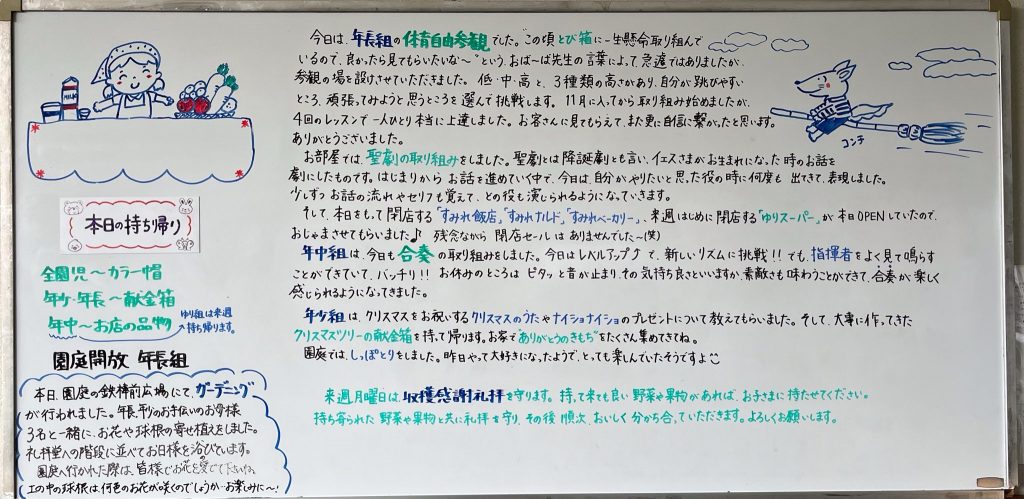 今日は、年長組の体育自由参観でした。“この頃とび箱に一生懸命取り組んで
いるので、良かったら見てもらいたいな〜”という、おばーば先生の言葉によって、急遽ではありましたが、
参観の場を設けさせていただきました。低・中・高と、3種類の高さがあり、自分が跳びやすい
ところ、頑張ってみようと思うところを選んで挑戦します。11月に入ってから取り組み始めましたが、
4回のレッスンで一人ひとり本当に上達しました。お客さんに見てもらえて、また更に自信に繋がったと思います。
ありがとうございました。
お部屋では、聖劇の取り組みをしました。聖劇とは降誕劇とも言い、イエスさまがお生まれになった時のお話を
劇にしたものです。はじまりからお話を進めていく中で、今日は、自分がやりたいと思った役の時に何度も出てきて、表現しました。
少しずつお話の流れやセリフも覚えて、どの役も演じられるようになっていきます。
そして、本日をもって閉店する「すみれ飯店」「すみれナルド」「すみれベーカリー」、来週はじめに閉店する「ゆりスーパー」が本日OPENしていたので、
おじゃまさせてもらいました♪ 残念ながら閉店セールはありませんでした〜(笑)
年中組は、今日も合奏の取り組みをしました。今日はレベルアップ⤴て、新しいリズムに挑戦!!でも、指揮者をよく見て鳴らす
ことができていて、バッチリ!! お休みのところはピタッと音が止まり、その気持ち良さといいますか、素敵さも味わうことができて、合奏が楽しく
感じられるようになってきました。
年少組は、クリスマスをお祝いするクリスマスのうたやナイショナイショのプレゼントについて教えてもらいました。そして、大事に作ってきた
クリスマスツリーの献金箱を持って帰ります。お家で“ありがとうのきもち”をたくさん集めてきてね。
園庭では、しっぽとりをしました。昨日やって大好きになったようで、とっても楽しんでいたそうですよ
来週月曜日は、収穫感謝礼拝を守ります。持って来ても良い野菜や果物があれば、お子さまに持たせてください。
持ち寄られた野菜や果物と共に礼拝を守り、その後順次、おいしく分かち合っていただきます。よろしくお願いします。
MILK
コンチ
本日の持ち帰り
全園児〜カラー帽
年少・年長〜献金箱
年中〜お店の品物
ゆり組は来週
持ち帰ります。
園庭開放 年長組
本日、園庭の鉄棒前広場にて、ガーデニング
が行われました。年長、年少のお手伝いのお母様
3名と一緒に、お花や球根の寄せ植えをしました。
礼拝堂への階段に並べてお日様を浴びています。
園庭へ行かれた際は、皆様でお花を愛でて下さいね。
土の中の球根は、何色のお花が咲くのでしょうか…お楽しみに〜!